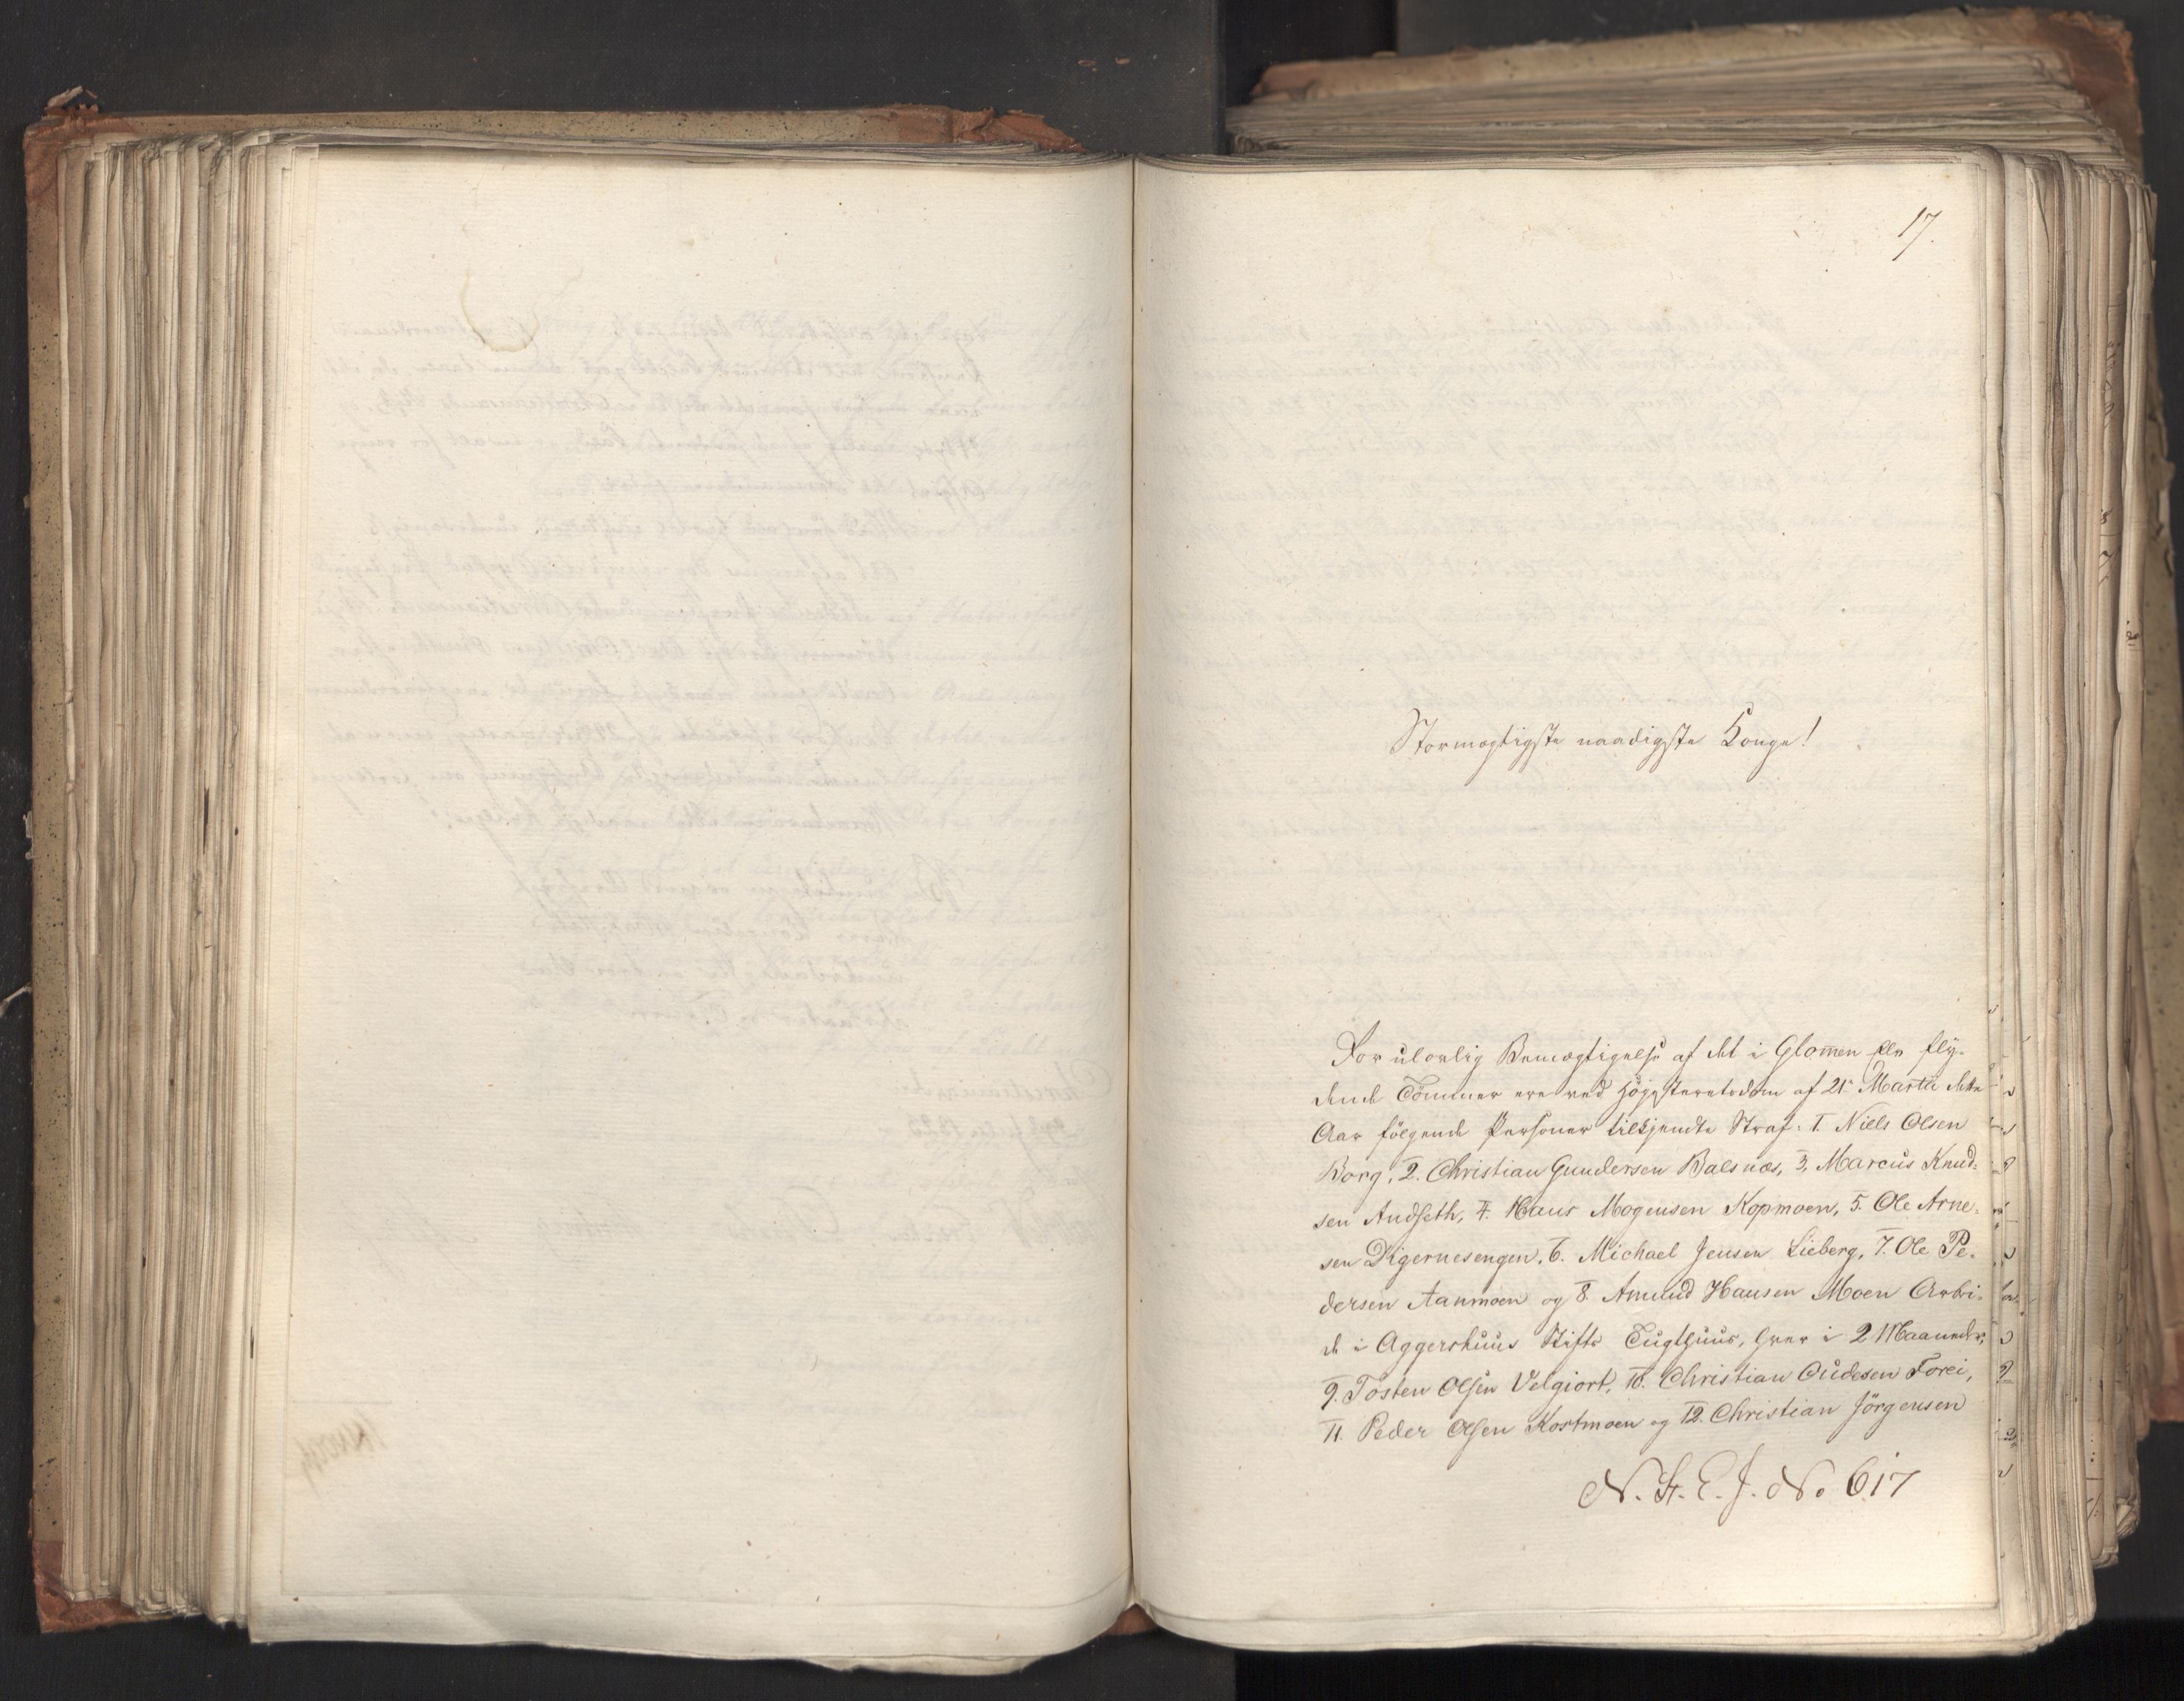 17.
Stormægtigste naadigste Konge!
For ulovlig Bemægtigelse af det i Glom̄en fly-
dende Tömmer ere ved Höiesteretsdom af 21de Martii dette
Aar følgende Personer tilkjendte Straf: 1. Niels Olsen
Borg, 2. Christian Gundersen Balsnæs, 3. Marcus Knud-
sen Audseth, 4. Hans Mogensen Kopmoen, 5. Ole Arne-
sen Digernesengen, 6. Michael Jensen Lieberg, 7. Ole Pe-
dersen Aanmoen og 8. Amund Hansen Moen Arbei-
de i Aggershuus Stifts Tugthuus, hver i 2 Maaneder,
9. Tosten Olsen Velgiort, 10. Christian Oudesen Forei,
11. Peder Olsen Kostmoen og 12. Christian Jörgensen
N. St. E. J. No 617